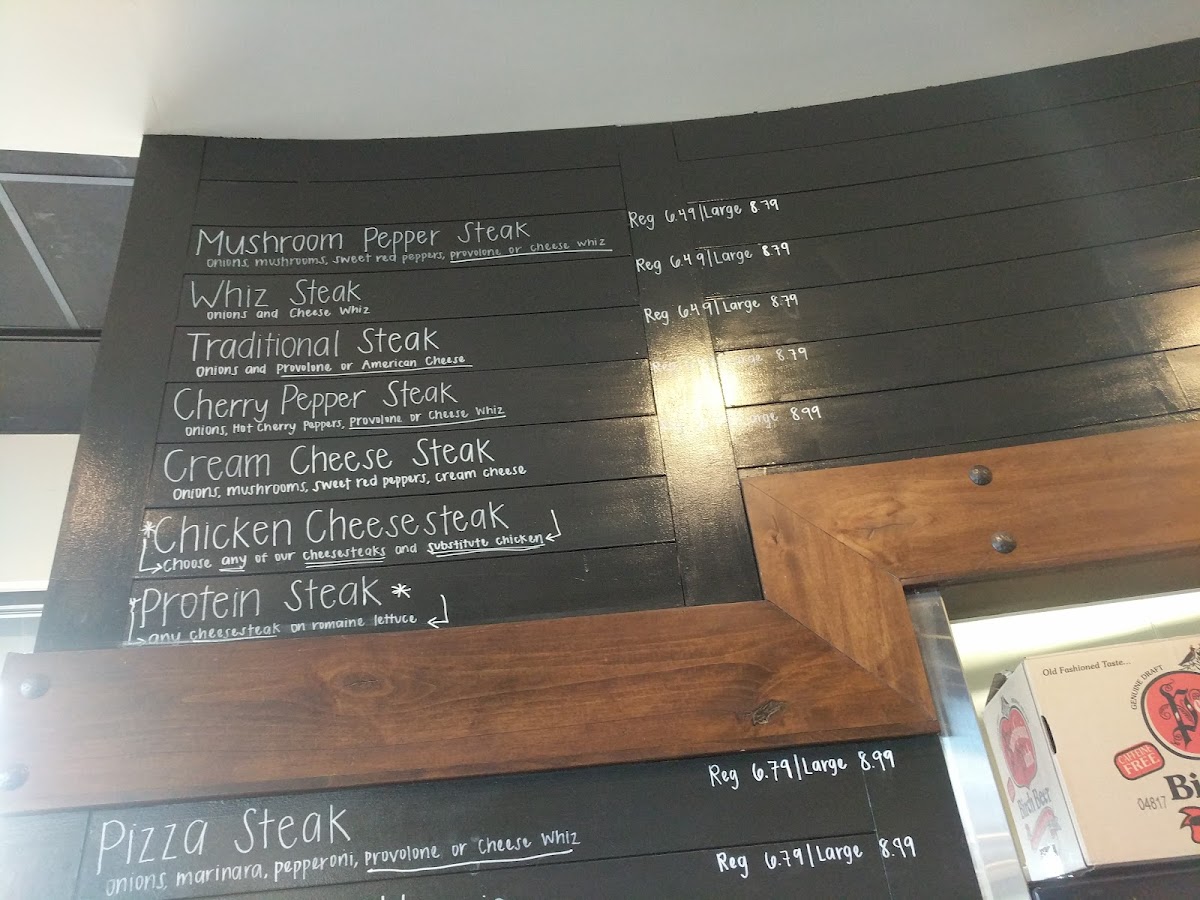 Mushroom Pepper Steak
onions, mushrooms, sweet red peppers, provolone or cheese whiz
Reg 6.49/Large 8.79
Whiz Steak
onions and Cheese Whiz
Reg 6.49/Large 8.79
Traditional Steak
onions and Provolone or American Cheese
Reg 6.49/Large 8.79
Cherry Pepper Steak
onions, Hot Cherry Peppers, Provolone or Cheese Whiz
Large 8.79
Cream Cheese Steak
onions, mushrooms, sweet red peppers, cream cheese
Large 8.99
*Chicken Cheesesteak
Choose any of our cheesesteaks and substitute chicken
Protein Steak*
any cheesesteak on romaine lettuce
Reg 6.79/Large 8.99
Pizza Steak
onions, marinara, pepperoni, provolone or Cheese Whiz
Reg 6.79/Large 8.99
Old Fashioned Taste...
GENUINE DRAFT
CAFFEINE
FREE
04817
Birch Beer